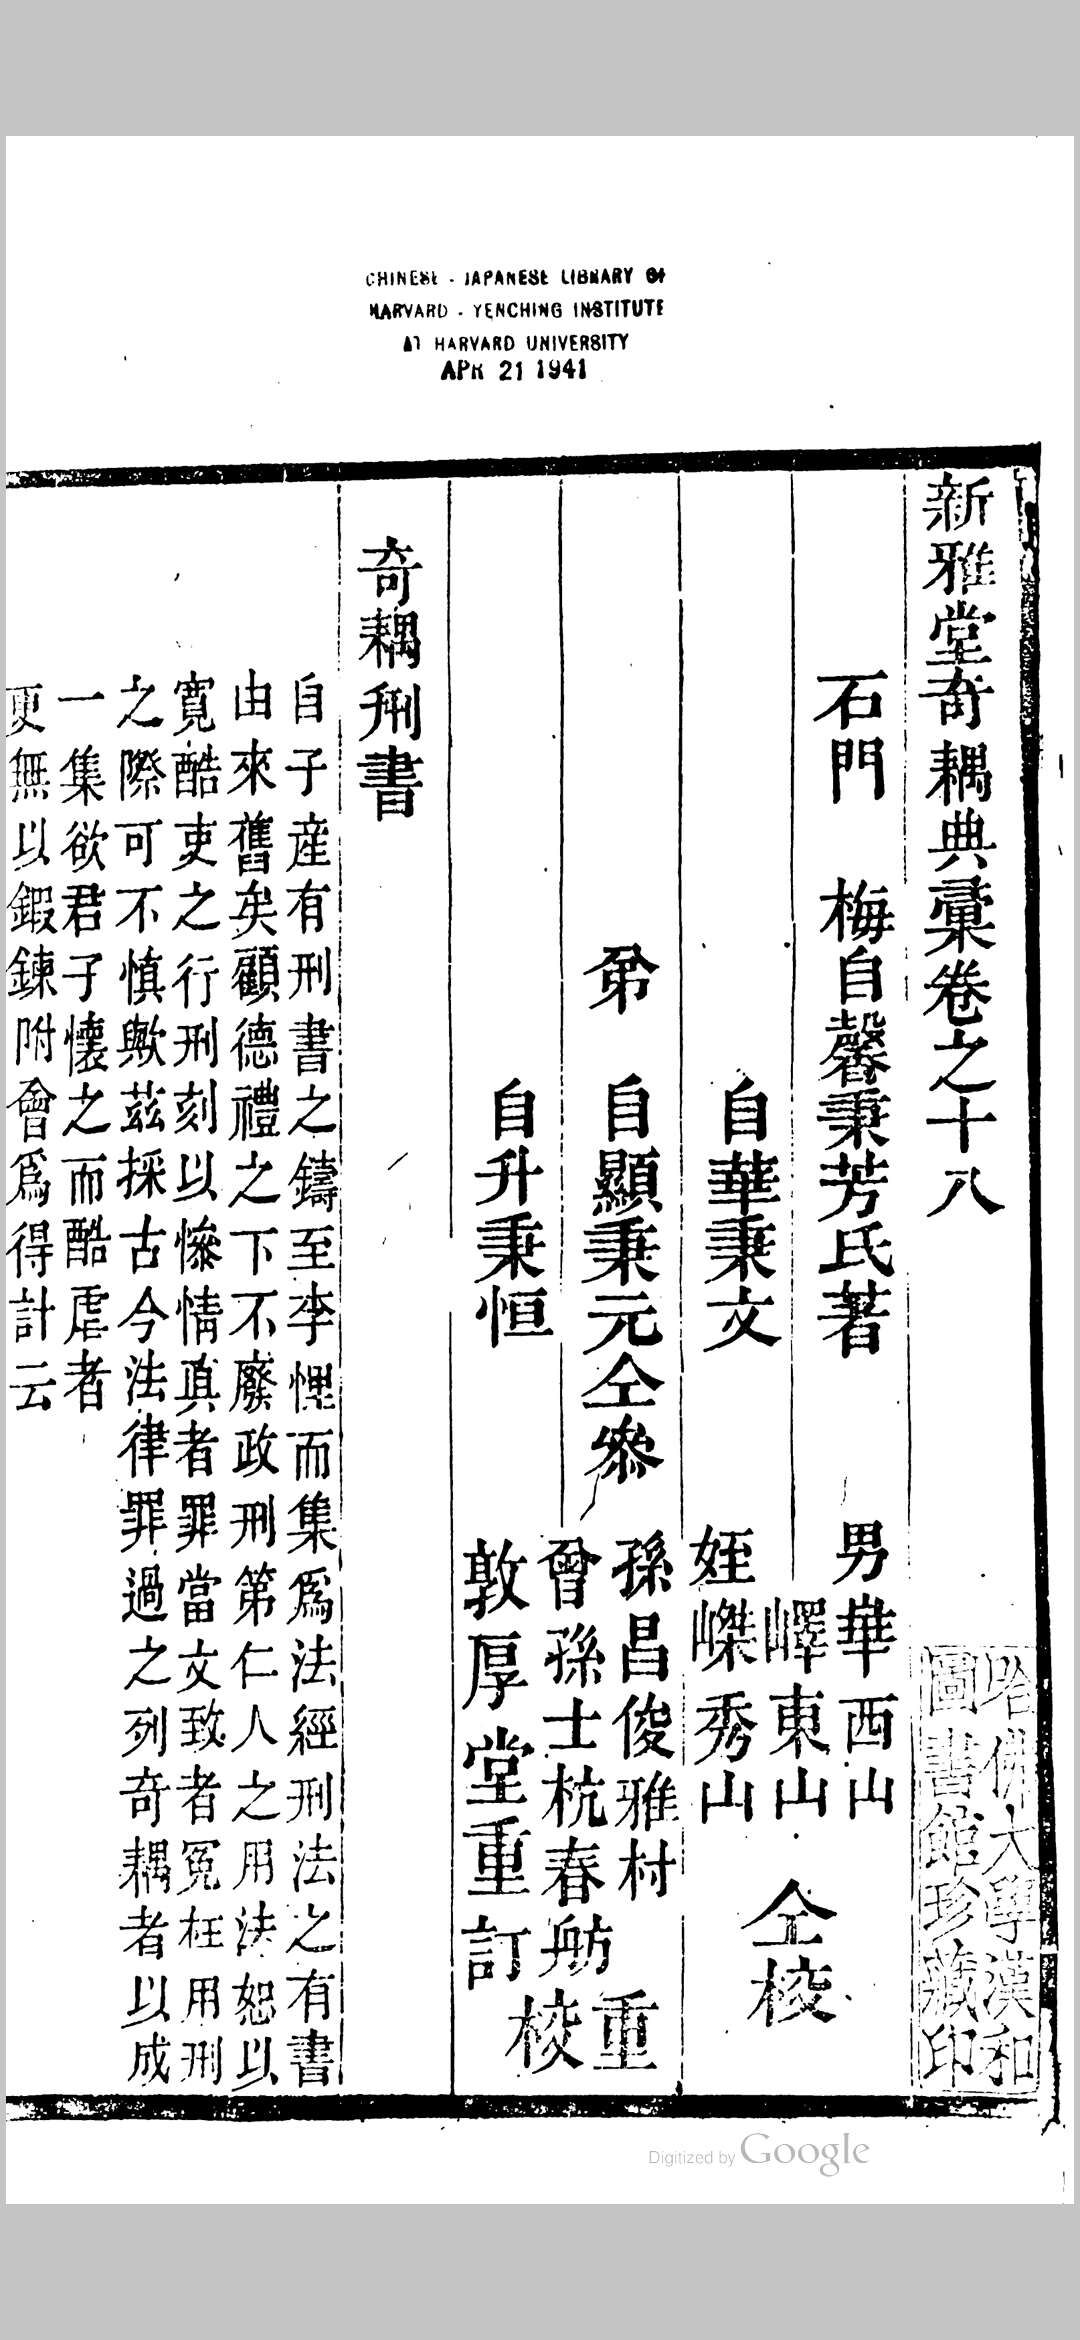 CHINESE - JAPANESE LIBRARY OF
HARVARD - YENCHING INSTITUTE
AT HARVARD UNIVERSITY
APR 21 1941
新雅堂奇耦典彙卷之十八
石門 梅自馨秉芳氏著
男華西山
嶧東山
自華秉文
姪嶸秀山
仝校
弟 自顯秉元仝叅
孫昌俊雅村
自升秉恒
曾孫士杭春舫
重校
敦厚堂重訂
奇耦刑書
自子產有刑書之鑄至李悝而集爲法經刑法之有書
由來舊矣顧德禮之下不廢政刑第仁人之用法恕以
寬酷吏之行刑刻以慘情眞者罪當文致者冤枉用刑
之際可不慎歟茲採古今法律罪過之列奇耦者以成
一集欲君子懷之而酷虐者
更無以鍜鍊附會爲得計云
哈佛大學漢和
圖書館珍藏印
Digitized by Google